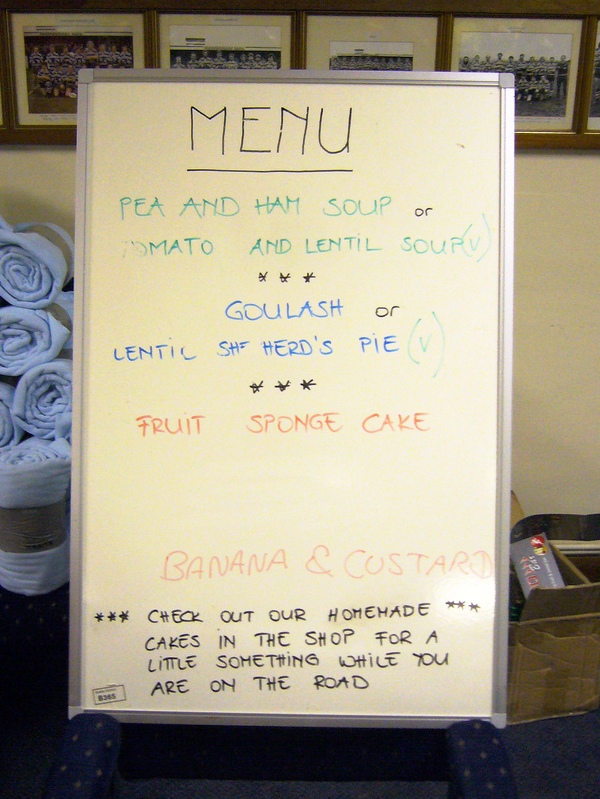 MENU
PEA AND HAM SOUP or
TOMATO AND LENTIL SOUP (V)
***
GOULASH or
LENTIL SHEPHERD'S PIE (V)
***
FRUIT SPONGE CAKE
BANANA & CUSTARD
*** CHECK OUT OUR HOMEMADE ***
CAKES IN THE SHOP FOR A
LITTLE SOMETHING WHILE YOU
ARE ON THE ROAD
B365